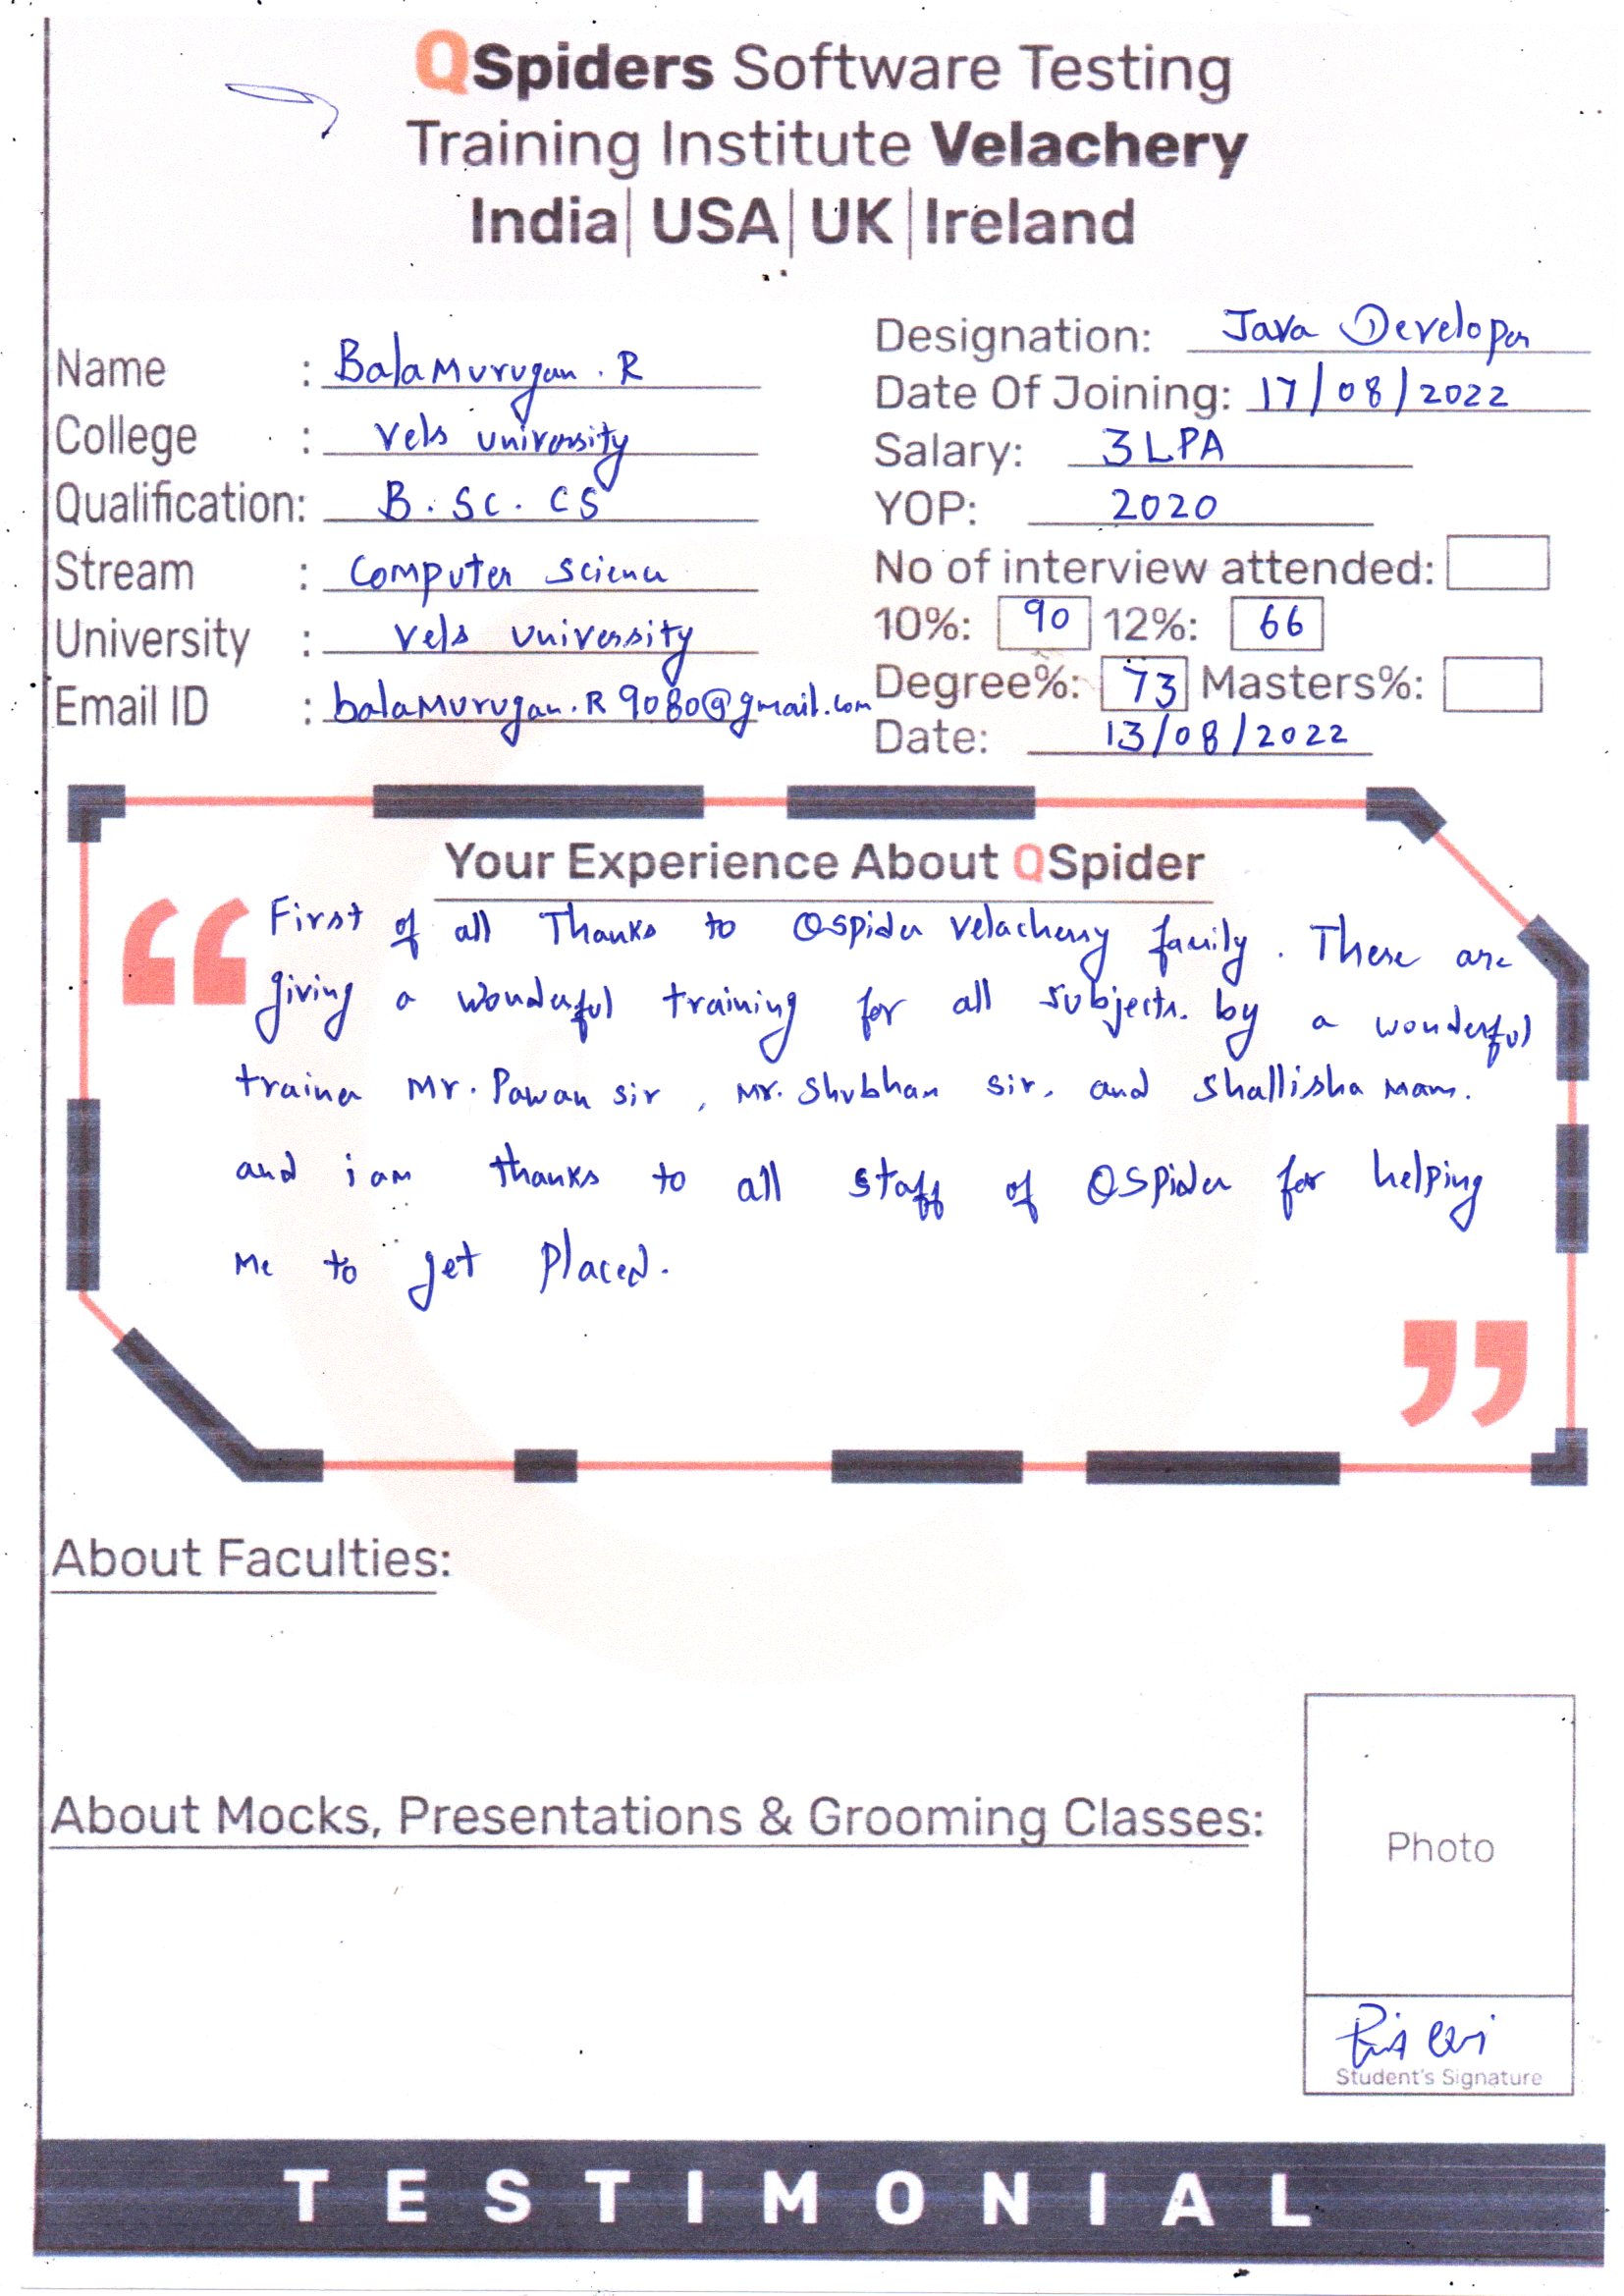 QSpiders Software Testing
Training Institute Velachery
India| USA| UK |Ireland
Name : BalaMurugan . R
College : Vels University
Qualification: B . Sc . CS
Stream : Computer Science
University : Vels University
Email ID : balaMurugan.R9080@gmail.com
Designation: Java Developer
Date Of Joining: 17/08/2022
Salary: 3 LPA
YOP: 2020
No of interview attended:
10%: 90 12%: 66
Degree%: 73 Masters%:
Date: 13/08/2022
Your Experience About QSpider
“ First of all Thanks to QSpider Velachery family . There are
giving a wonderful training for all subjects. by a wonderful
trainer Mr. Pawan sir , Mr. Shubhan sir, and Shallisha Mam.
and i am thanks to all staff of QSpider for helping
Me to get Placed. ”
About Faculties:
About Mocks, Presentations & Grooming Classes:
Photo
Student's Signature
TESTIMONIAL